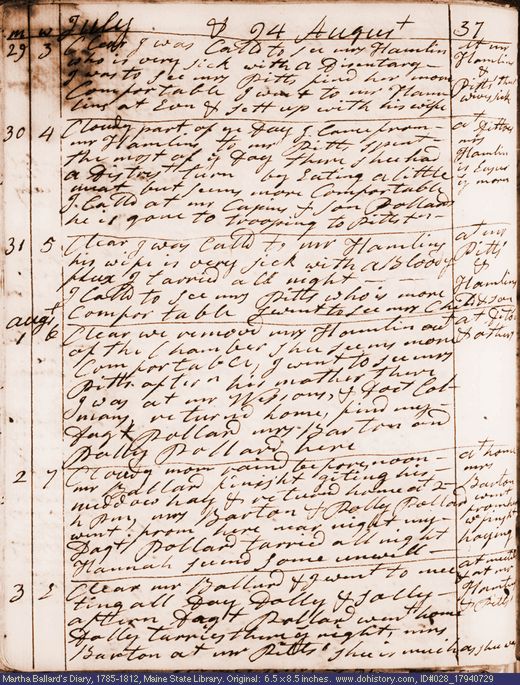 m w July & 94 August 37
29 3 Clear I was Calld to see mrs Hamlin
who is very sick with a Disentary
I was to see mrs Pitts find her more
Comfortable I went to mr Ham
lins at Evn & sett up with his wife
at mr
Hamlin
&
Pitts
30 4 Cloudy part of ye Day I Came from
mr Hamlins to mr Pitts spent
the most of ye Day there shee had
a Distrest turn by Eating a little
meat but seems more Comfortable
I Calld at my Capins & son Pollard
he is gone to trooping to Pittston
at Pittss
mrs
Hamlin
is
31 5 Clear I was Calld to mr Hamlins
his wife is very sick with a Bloody
flux I tarried all night
I Calld to see mrs Pitts who is more
Comfortable I went to see my
at mr
Pitts
&
Hamlins
& son
augst
1 6 Clear we removed mrs Hamlin out
of the Chamber shee seems more
Comfortable, I went to see mrs
Pitts aftern his mother there
I was at mr & Doct Col
mans, returned home, find my
Dagt Pollard mrs Barton and
Dolly Pollard here
at Pitts
& others
2 7 Cloudy morn rain before noon
mr Ballard finisht geting his
meddow hay & returnd home at 2
h pm, mrs Barton & Polly Pollard
went from here was night my
Dagt Pollard tarried all night
Hannah seems some unwell
at home
mrs
Barton
went
from
hear
haying
3 E Clear mr Ballard & I went to mee
ting all Day Dolly & Sally
aftern Dagt Pollard went home
Dolly tarries there ye night, mrs
Barton at mr Pitts' shee is much as shee was
at meeting
& at mr
Hamlins
& Pitts'
Martha Ballard's Diary, 1785-1812, Maine State Library. Original: 6.5 x 8.5 inches. www.dohistory.com, ID#028_17940729